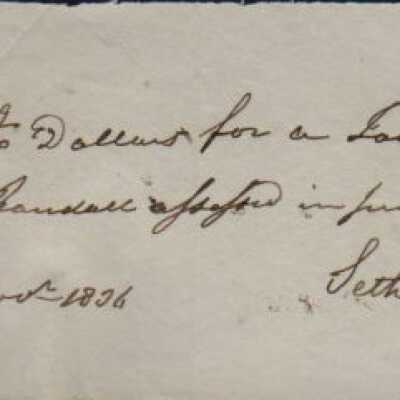 Dollars for a
Randall assessed in
Nov. 1836 Seth